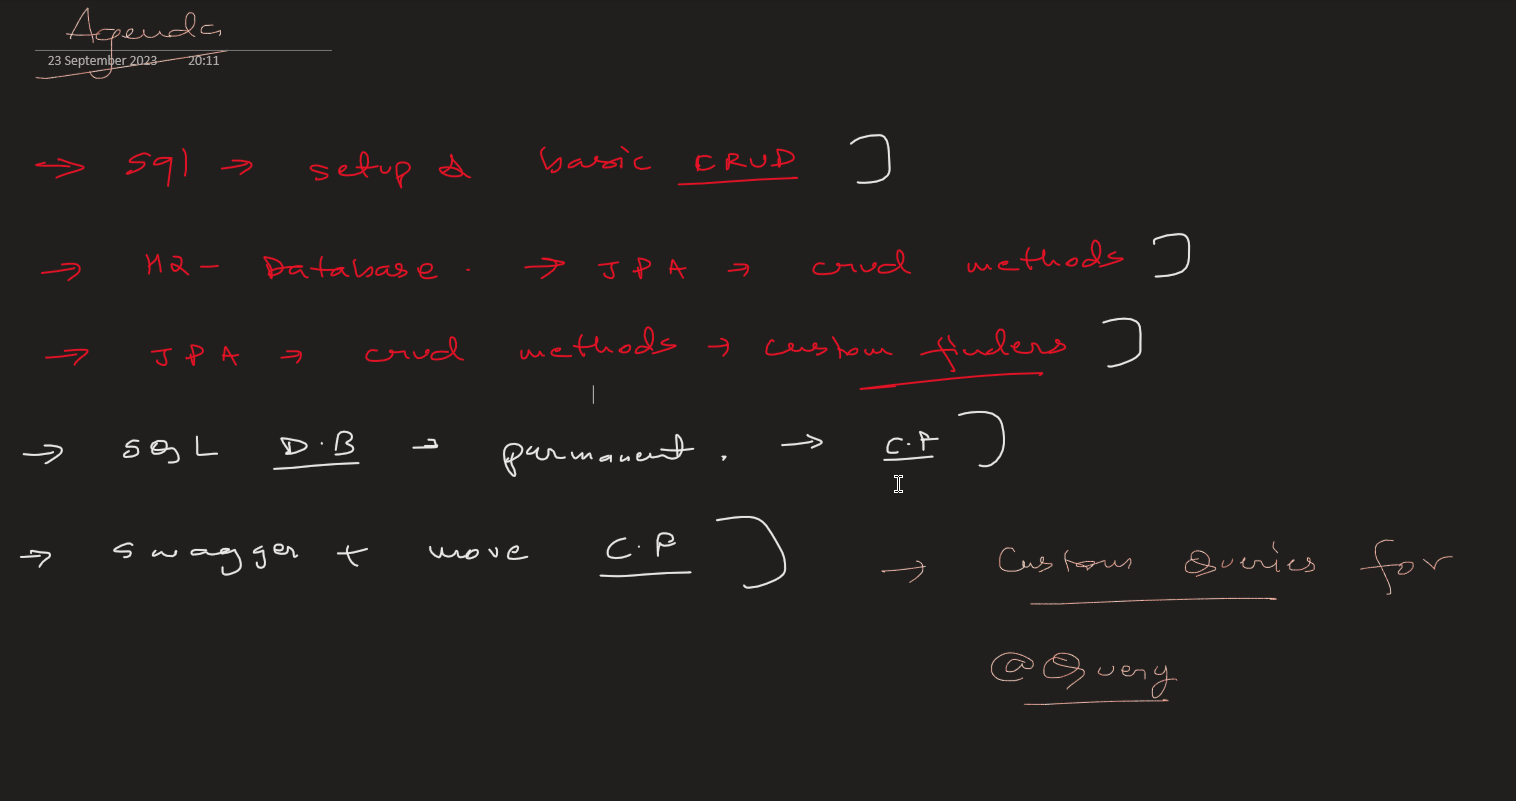 Agenda
23 September 2023 20:11
⇒ Sql → setup & basic CRUD ]
→ H2 - Database. → JPA → crud methods ]
→ JPA → crud methods → custom finders ]
→ SQL D.B → parmanent. → C.P ]
→ swagger + move C.P ]
→ Custom Queries for
@Query